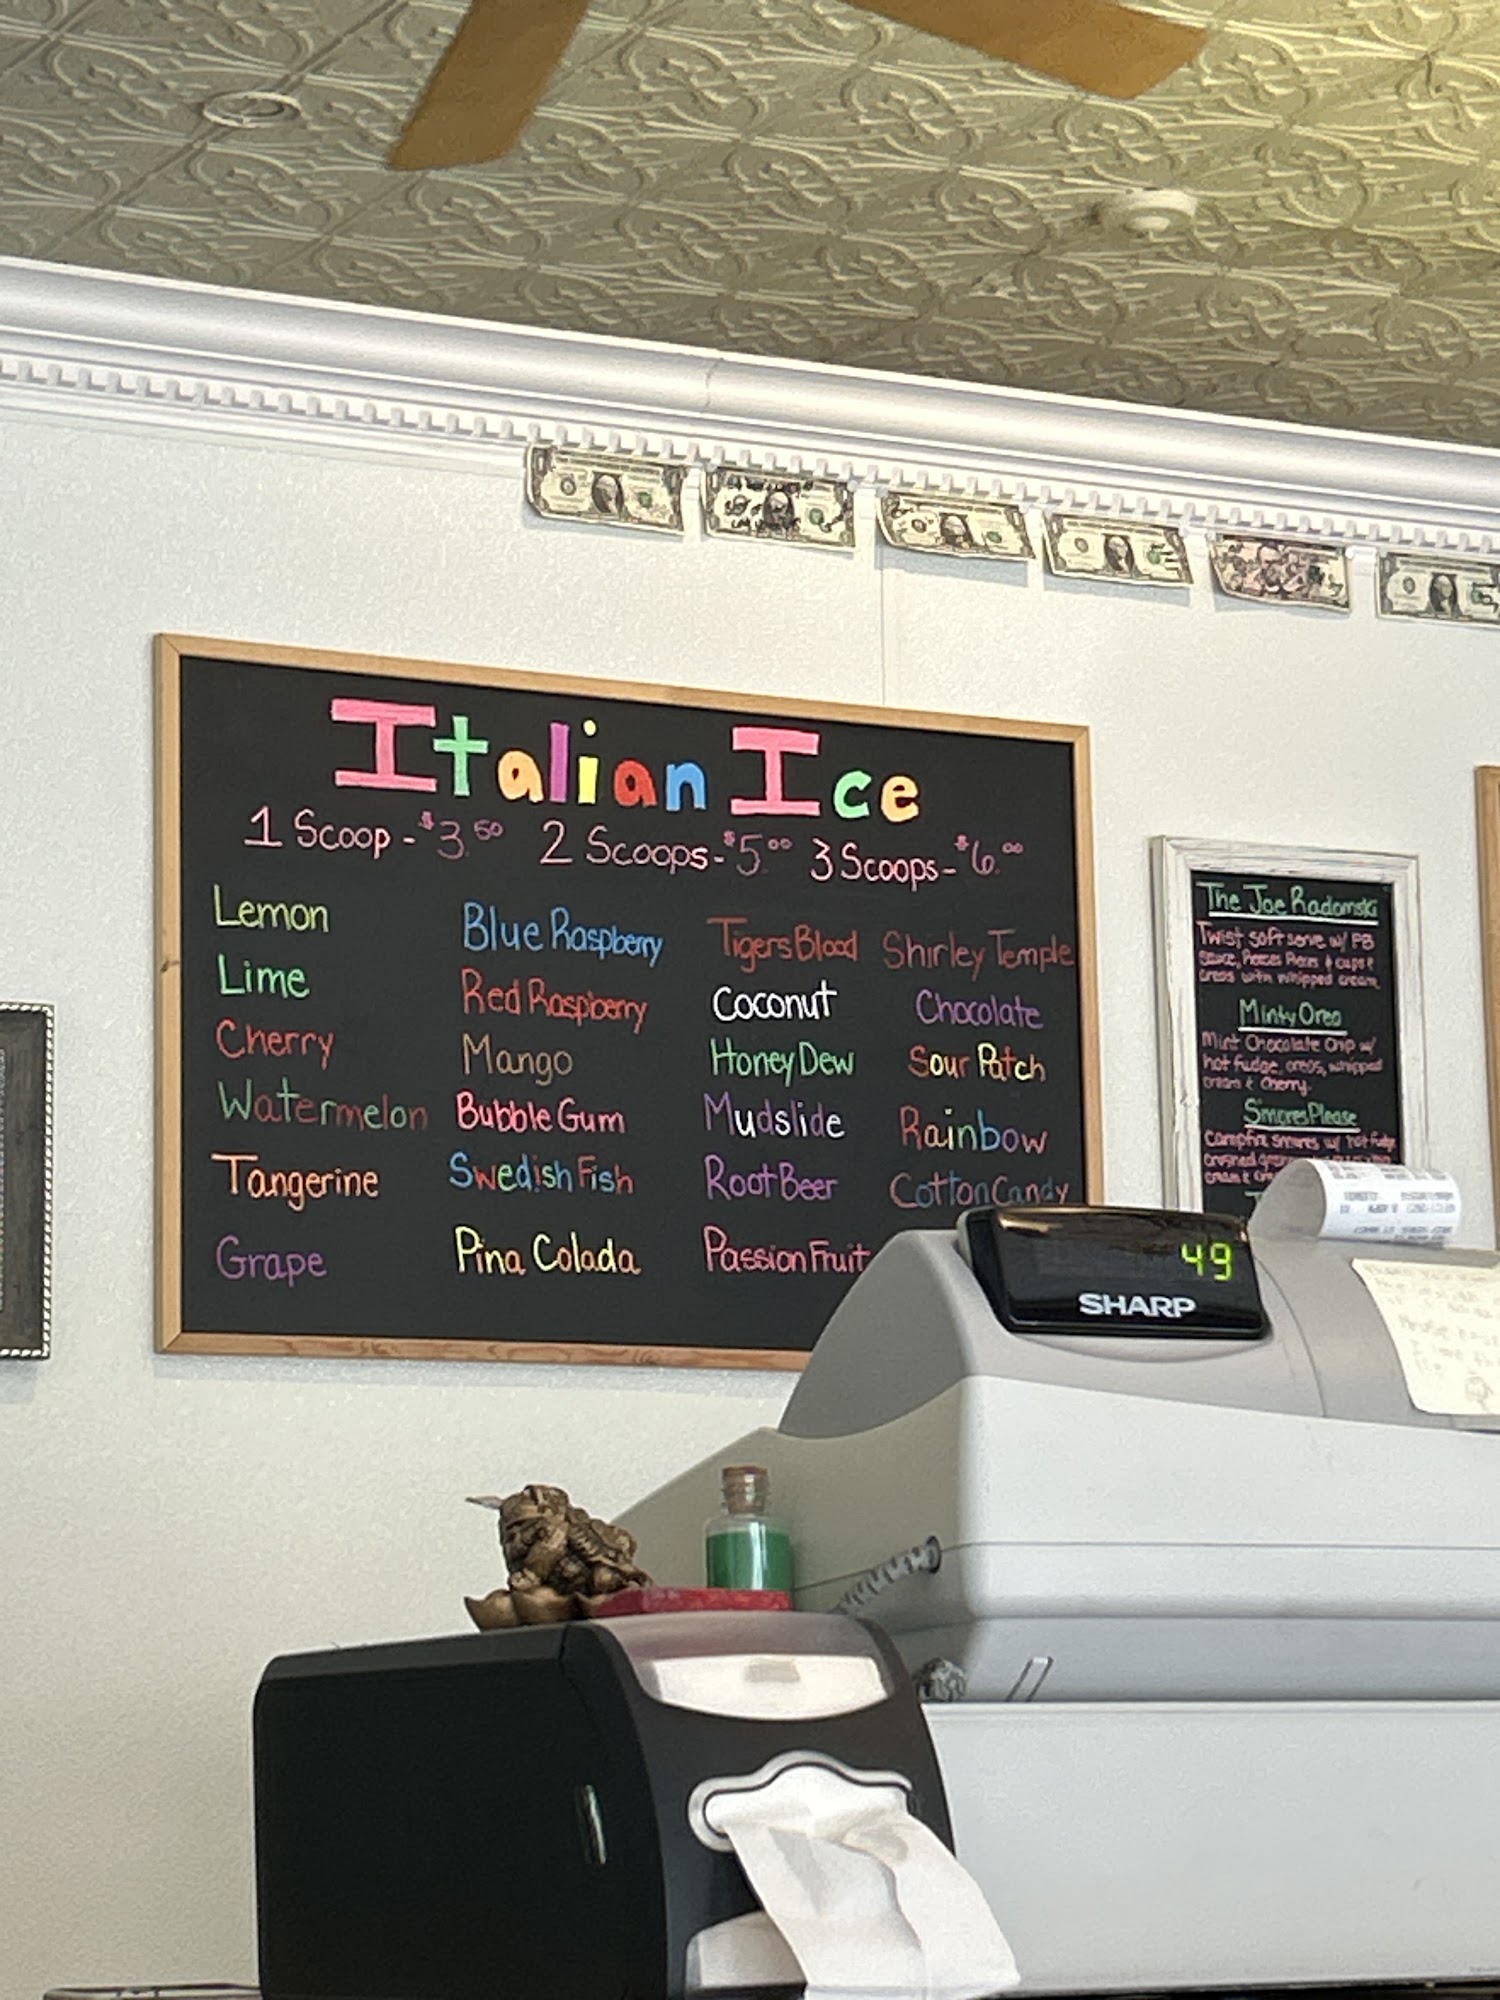 Italian Ice
1 Scoop - $3.50 2 Scoops - $5.00 3 Scoops - $6.00
Lemon
Lime
Cherry
Watermelon
Tangerine
Grape
Blue Raspberry
Red Raspberry
Mango
Bubble Gum
Swedish Fish
Pina Colada
Tigers Blood
Coconut
Honey Dew
Mudslide
Root Beer
Passion Fruit
Shirley Temple
Chocolate
Sour Patch
Rainbow
Cotton Candy
The Joe Radomski
Twist soft serve w/ PB
Sauce, Reeses Pieces & cups &
oreos with whipped cream.
Minty Oreo
Mint Chocolate Chip w/
hot fudge, oreos, whipped
cream & Cherry.
S'mores Please
Campfire smores w/ hot fudge
49
SHARP